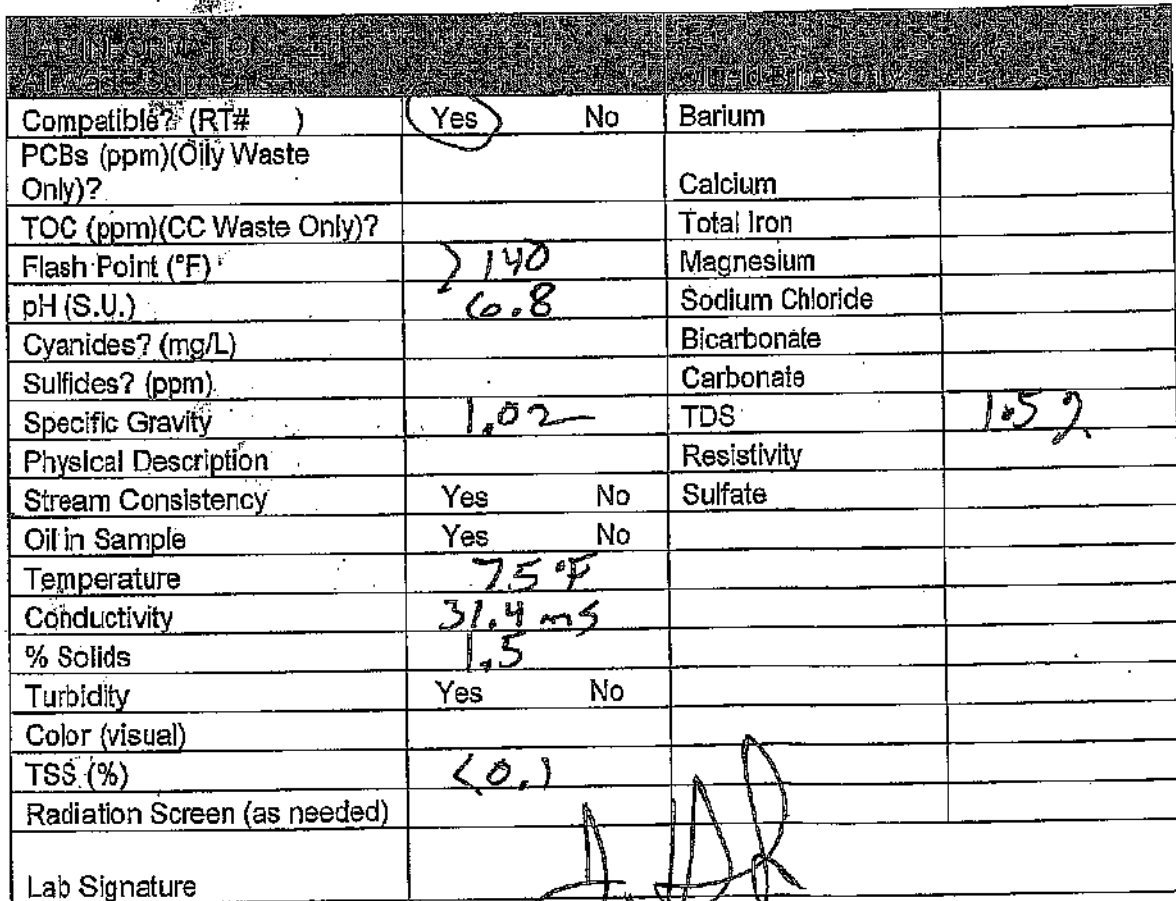 LAB INFORMATION
All Waste Shipments Oilfield Brines Only
Compatible? (RT# ) Yes No Barium
PCBs (ppm)(Oily Waste
Only)? Calcium
TOC (ppm)(CC Waste Only)? Total Iron
Flash Point (°F) >140 Magnesium
pH (S.U.) 6.8 Sodium Chloride
Cyanides? (mg/L) Bicarbonate
Sulfides? (ppm) Carbonate
Specific Gravity 1.02 TDS 1.5%
Physical Description Resistivity
Stream Consistency Yes No Sulfate
Oil in Sample Yes No
Temperature 75°F
Conductivity 31.4 ms
% Solids 1.5
Turbidity Yes No
Color (visual)
TSS (%) <0.1
Radiation Screen (as needed)
Lab Signature